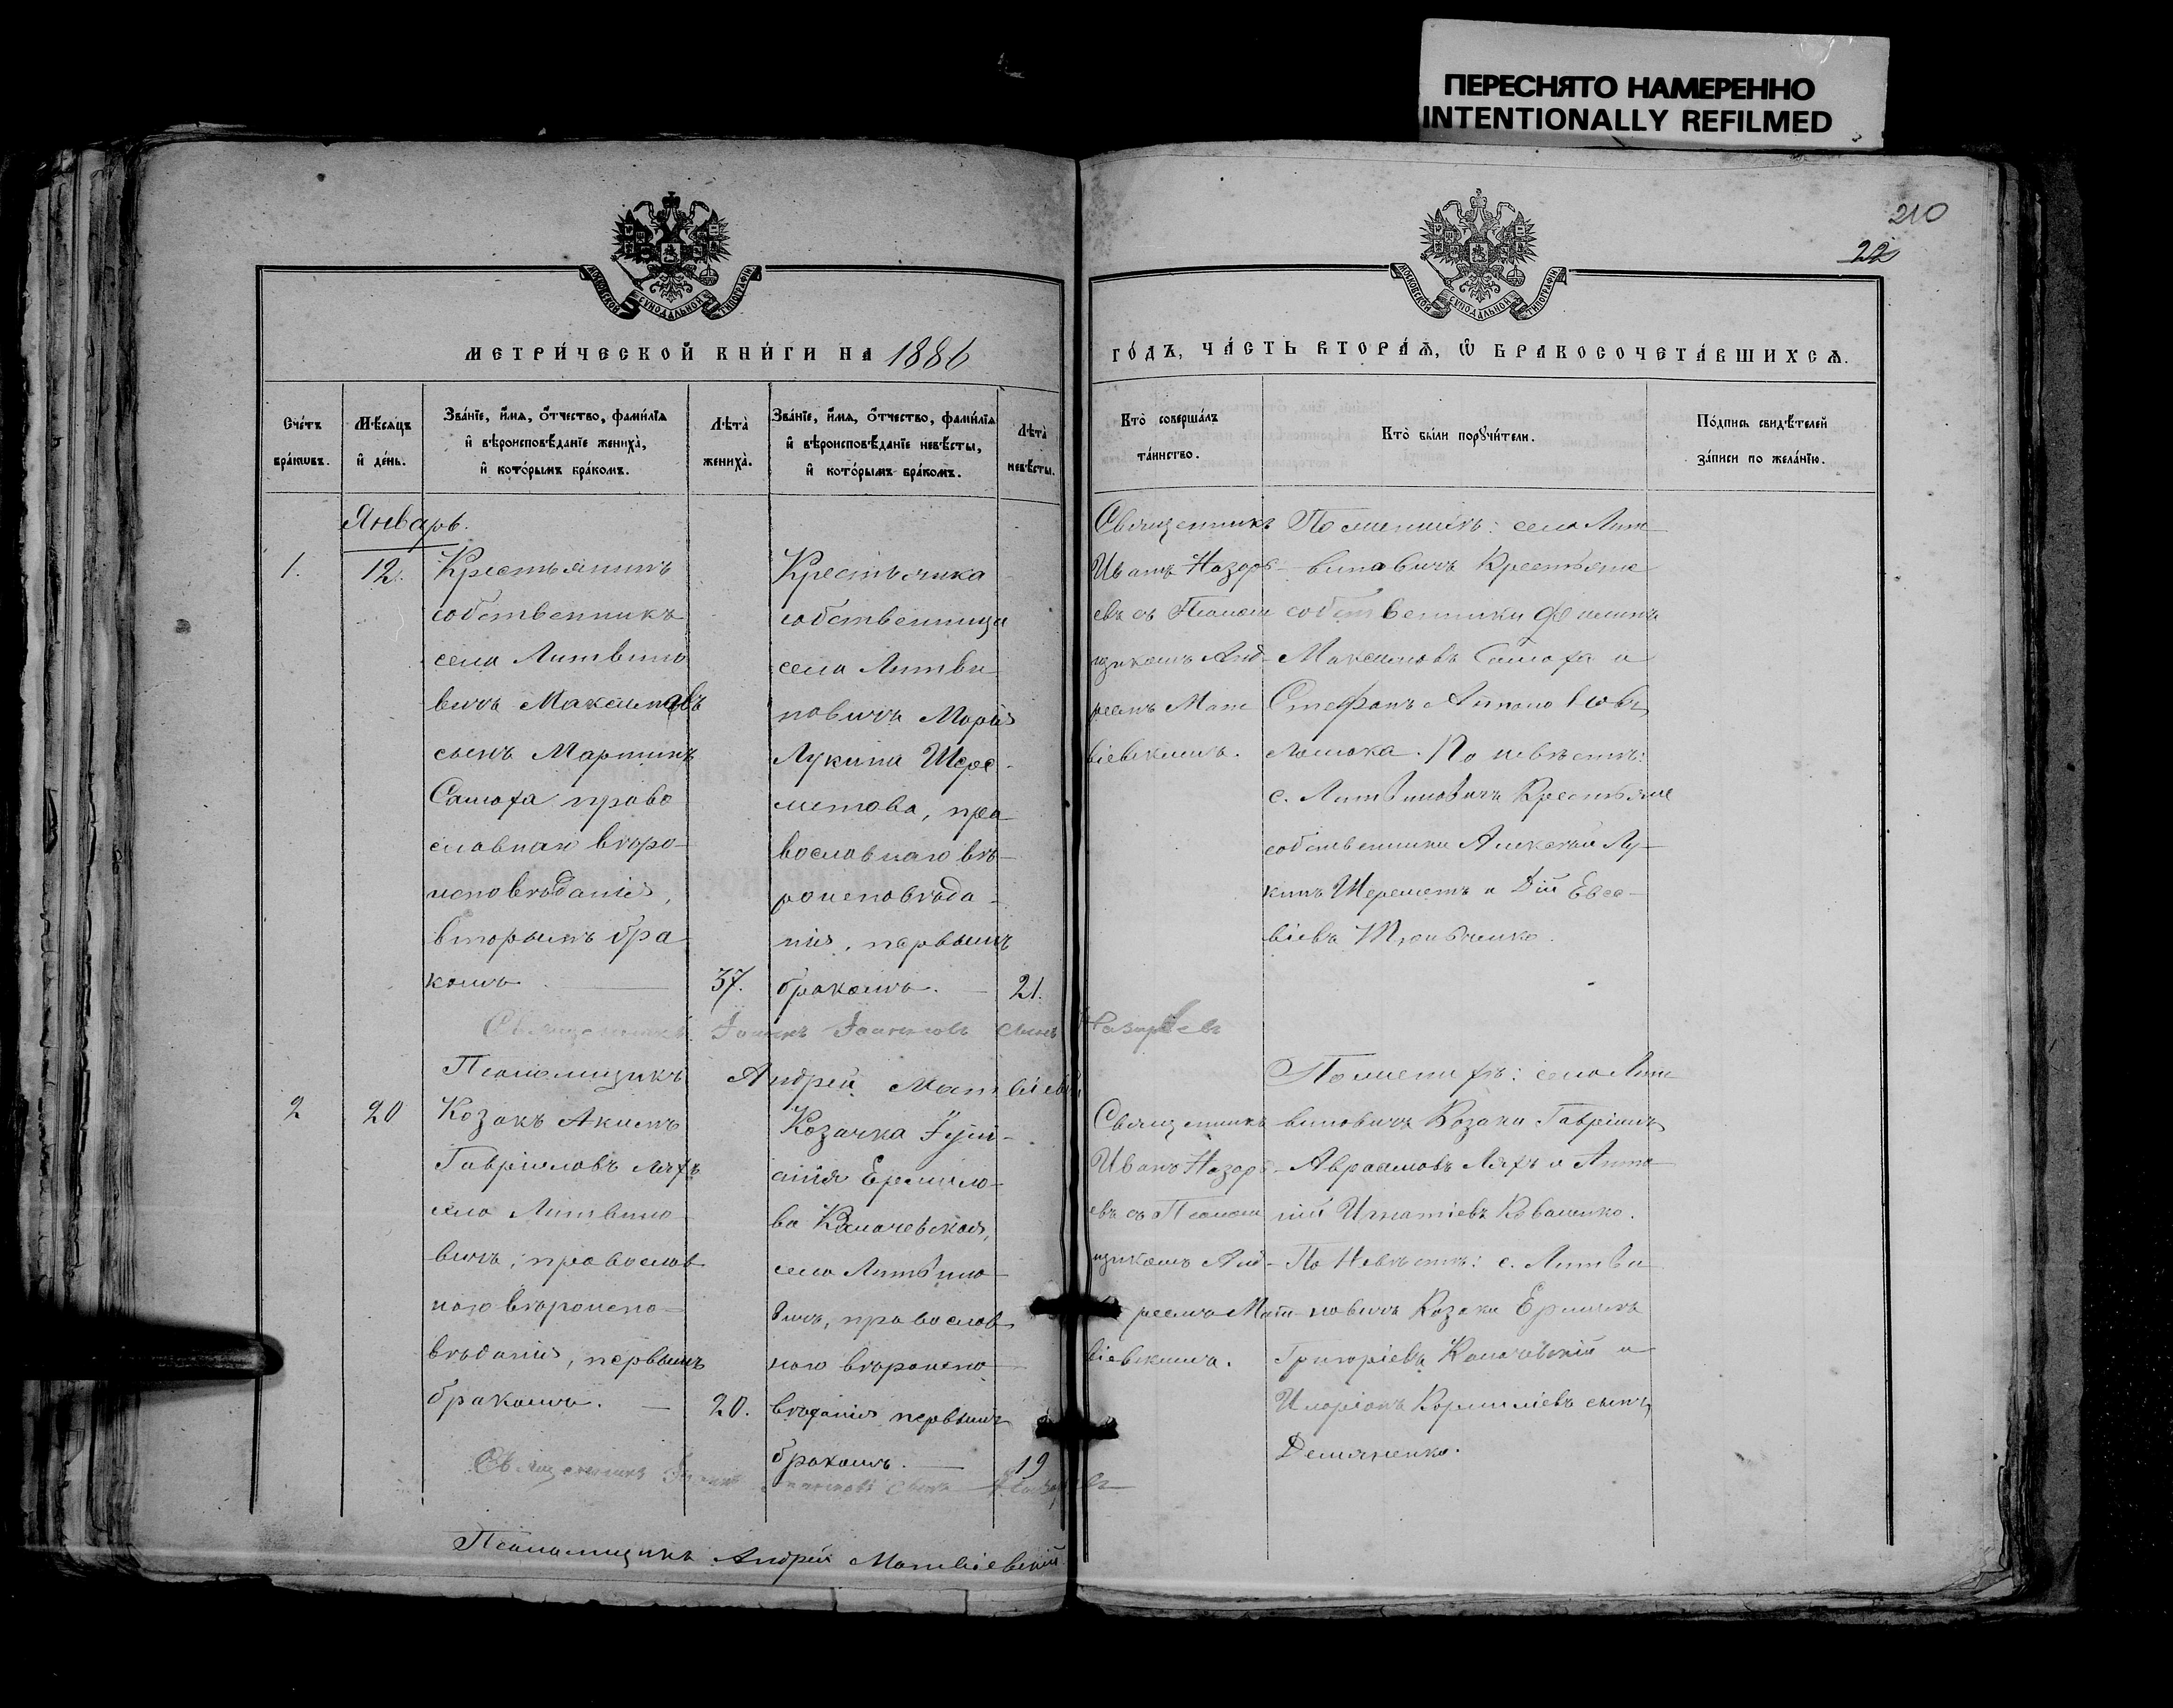 ПЕРЕСНЯТО НАМЕРЕННО
INTENTIONALLY REFILMED
210
22
МОСКОВСКОЙ СѴНОДАЛЬНОЙ ТИПОГРАФІИ
МОСКОВСКОЙ СѴНОДАЛЬНОЙ ТИПОГРАФІИ
МЕТРИ́ЧЕСКОЙ КНИ́ГИ НА 1886
ГО́ДЪ, ЧА́СТЬ ВТОРА́Ѧ, Ѽ БРАКОСОЧЕТА́ВШИХСѦ.
Сче́тъ
бра́кѡвъ.
Мѣ́сѧцъ
и҆ де́нь.
Зва́нїе, и҆́мѧ, ѻ҆́тчество, фами́лїѧ
и҆ вѣроисповѣ́данїе жениха̀,
и҆ кото́рымъ бра́комъ.
Лѣта̀
жениха̀.
Зва́нїе, и҆́мѧ, ѻ҆́тчество, фами́лїѧ
и҆ вѣроисповѣ́данїе невѣ́сты,
и҆ кото́рымъ бра́комъ.
Лѣта̀
невѣ́сты.
Кто̀ соверша́лъ
та́инство.
Кто̀ бы́ли порꙋчи́тели.
По́дпись свидѣ́телей
за́писи по жела́нїю.
Январь.
1.
12.
Крестьянинъ
собственникъ
села Литвино
вичъ Максимовъ
сынъ Мартинъ
Самоха право
славнаго вѣро-
исповѣданія,
вторымъ бра
комъ
37.
Крестьянка
собственница
села Литви-
новичъ Марія
Лукина Шере-
метова, пра
вославнаго вѣ-
роисповѣда-
нія, первымъ
бракомъ.
21.
Священникъ
Иванъ Назарь-
евъ съ Псалом
щикомъ Анд-
реемъ Мат
віевскимъ.
По женихѣ: села Лит
виновичъ Крестьяне
собственники
Максимовъ Самоха и
Стефанъ
По невѣстѣ:
с. Литвиновичъ Крестьяне
собственники Алексѣй Лу-
кинъ Шереметъ и Дій Евсе-
віевъ
Священникъ Іоаннъ Іоанновъ сынъ Назарьевъ
Псаломщикъ Андрей Матвіевскій
2
20
Козакъ Акимъ
Гавріиловъ Ляхъ
села Литвино
вичъ, православ
наго вѣроиспо-
вѣданія, первымъ
бракомъ.
20.
Козачка Іулі-
анія Ермило-
ва Калачевская,
села Литвино-
вичъ, православ
наго вѣроиспо-
вѣданія первымъ
бракомъ.
19
Священникъ
Иванъ Назарь-
евъ съ Псалом
щикомъ Анд-
реемъ Мат
віевскимъ.
По женихѣ: села Лит
виновичъ Козаки Гавріилъ
Авраамовъ Ляхъ и Анто-
ній Игнатіевъ Коваленко.
По Невѣстѣ: с. Литви
новичъ Козаки Ермилъ
Григоріевъ Калачевскій и
Иларіонъ Корниліевъ сынъ
Демяненко.
Священникъ Іоаннъ Іоанновъ сынъ Назарьевъ
Псаломщикъ Андрей Матвіевскій